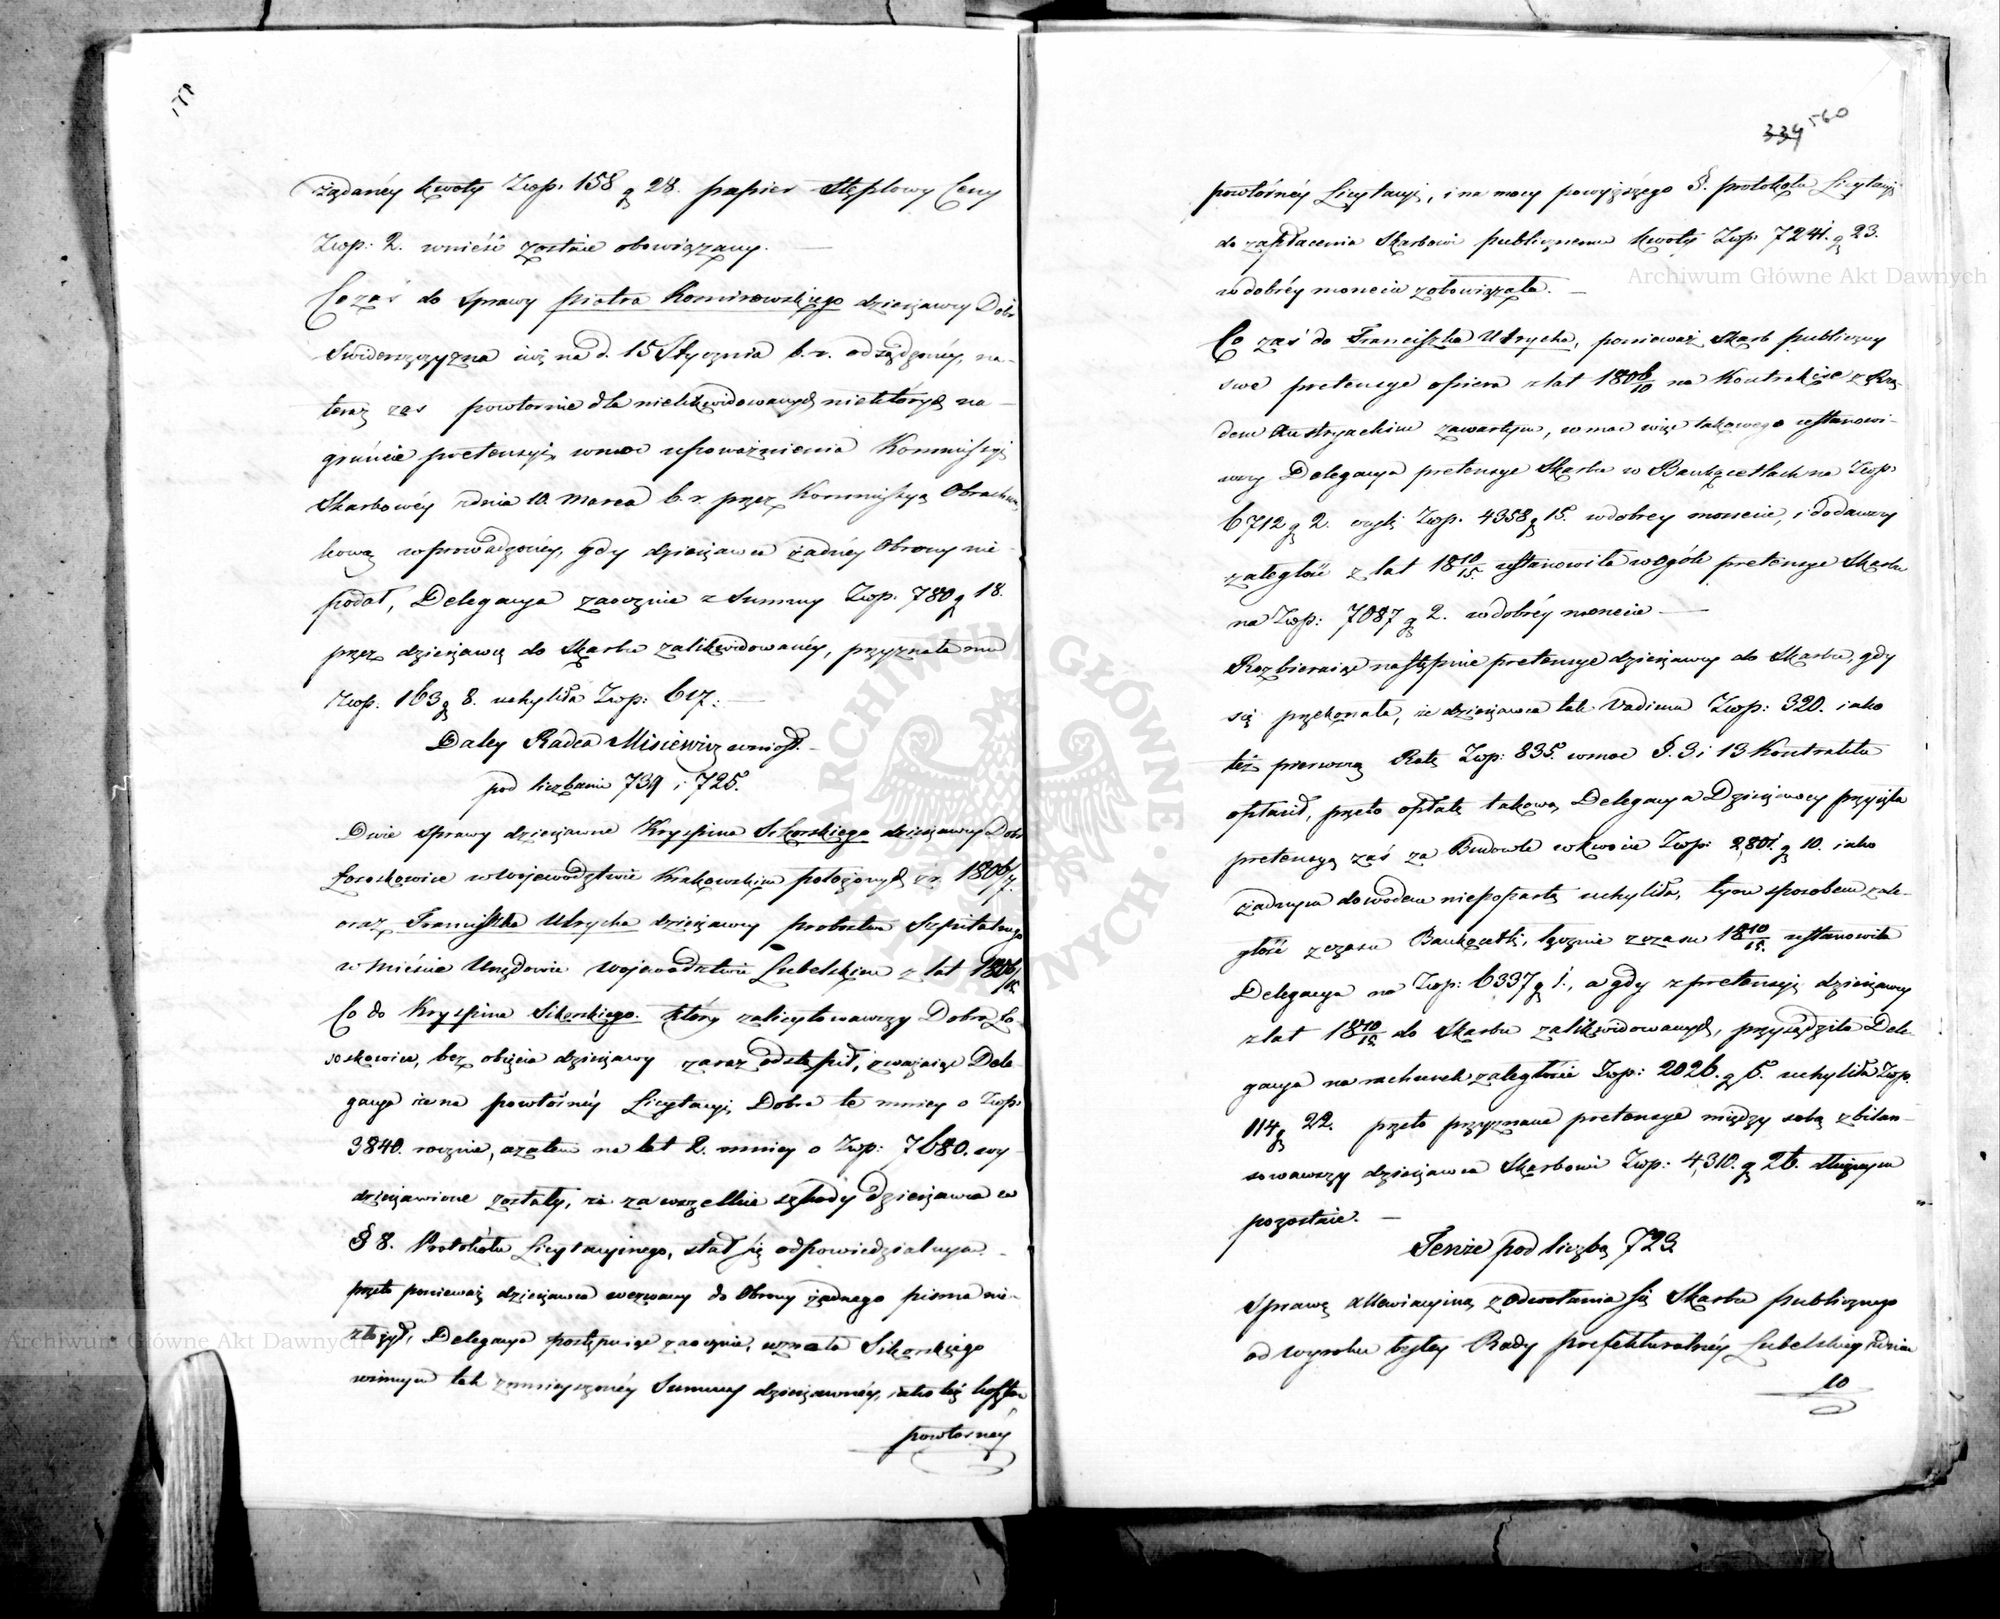 żądanéy kwoty Zwp. 158 g 28. papier Stęplowy Ceny
Zwp: 2. wnieść zostaie obowiązany. —
Co zaś do Sprawy Piotra Komirowskiego dzierżawcy Dobr
Swiderszczyzna iuż na d. 15 Stycznia b. r. odsądzonéy, na-
teraz zas powtornie dla nielikwidowanych niektórych na
grúncie pretensyi, wmoc upoważnienia Kommissyi
Skarbowéy zdnia 10. Marca b. r. przez Kommissyą Obrachun
kową wprowadzonéy, gdy dzierżawca żadnéy Obrony nie
podał, Delegacya zaocznie z Summy Zwp. 780 g 18.
przez dzierżawcę do Skarbu zalikwidowanéy, przyznała mu
Zwp. 163 g 8. uchyliła Zwp: 617. —
Daley Radca Misiewicz wniosł. —
pod liczbami 739 i 725.
Dwie sprawy dzierżawne Kryspina Sikorskiego dzierżawcy Dobr
Łososkowice w Województwie Krakowskim położonych z r. 1806/7.
oraz Franciszka Ulrycha dzierżawcy probostwa Szpitalnego
w Mieście Urzędowie Wojewodztwie Lubelskiem z lat 1806/15
Co do Kryspina Sikorskiego. który zalicytowawszy Dobra Ło-
soskowice, bez obięcia dzierżawy zaraz odstąpił, zważaiąc Dele-
gacya iż na powtórnéy Licytacyi, Dobra te mniey o Zwp:
3840. rocznie, azatem na lat 2. mniey o Zwp: 7680. wy-
dzierżawione zostały, że za wszelkie szkody dzierżawca w
§ 8. Protokołu Licytacyinego, stał się odpowiedzialnym —
przeto ponieważ dzierżawca wezwany do Obrony żadnego pisma nie-
złożył, Delegacya postępuiąc zaocznie, uznała Sikorskiego
winnym tak zmnieyszonéy Summy dzierżawnéy, iako też kosztów
powtórnéy
334 560
powtórnéy Licytacyi, i na mocy powyższego §. protokołu Licytacyi
do zapłacenia Skarbowi publicznemu kwoty Zwp. 7241. g 23.
w dobréy monecie zobowiązała. —
Co zaś do Franciszka Ulrycha, ponieważ Skarb publiczny
swe pretensye opiera z lat 1806/10 na Kontrakcie z Rzą-
dem Austryackim zawartym, wmoc więc takowego ustanowi-
wszy Delegacya pretensye Skarbu w Bankocetlach na Zwp:
6712 g 2. czyli Zwp. 4358 g 15. wdobrey monecie, i dodawszy
zaległość z lat 1810/15. ustanowiła wogóle pretensye Skarbu
na Zwp: 7087 g 2. wdobréy monecie —
Rozbieraiąc następnie pretensye dzierżawcy do Skarbu, gdy
się przekonała, że dzierżawca tak Vadium Zwp: 320. iako
też pierwszą Ratę Zwp: 835. wmoc §. 3 i 13 Kontraktu
opłacił, przeto opłatę takową Delegacya Dzierżawcy przyięła
pretensyą zaś za Budowle w kwocie Zwp: 2,801. g 10. iako
żadnym dowodem niepopartą uchyliła, tym sposobem zale-
głość z czasu Bankocetli, łącznie z czasu 1810/15. ustanowiła
Delegacya na Zwp: 6337 g 1., a gdy z pretensyi dzierżawcy
z lat 1810/15 do Skarbu zalikwidowanych, przysądziła Dele-
gacya na rachunek zaległości Zwp: 2026. g 5. uchyliła Zwp.
114 g 22. przeto przyznane pretensye między sobą zbilan-
sowawszy dzierżawca Skarbowi Zwp: 4,310. g 26. dłużnym
pozostaie. —
Tenże pod liczbą 723
Sprawę Allewiacyiną z odwołania się Skarbu publicznego
od wyroku byłey Rady prefekturalnéy Lubelskiey zdnia
10
Archiwum Główne Akt Dawnych
Archiwum Główne Akt Dawnych
ARCHIWUM GŁÓWNE AKT DAWNYCH